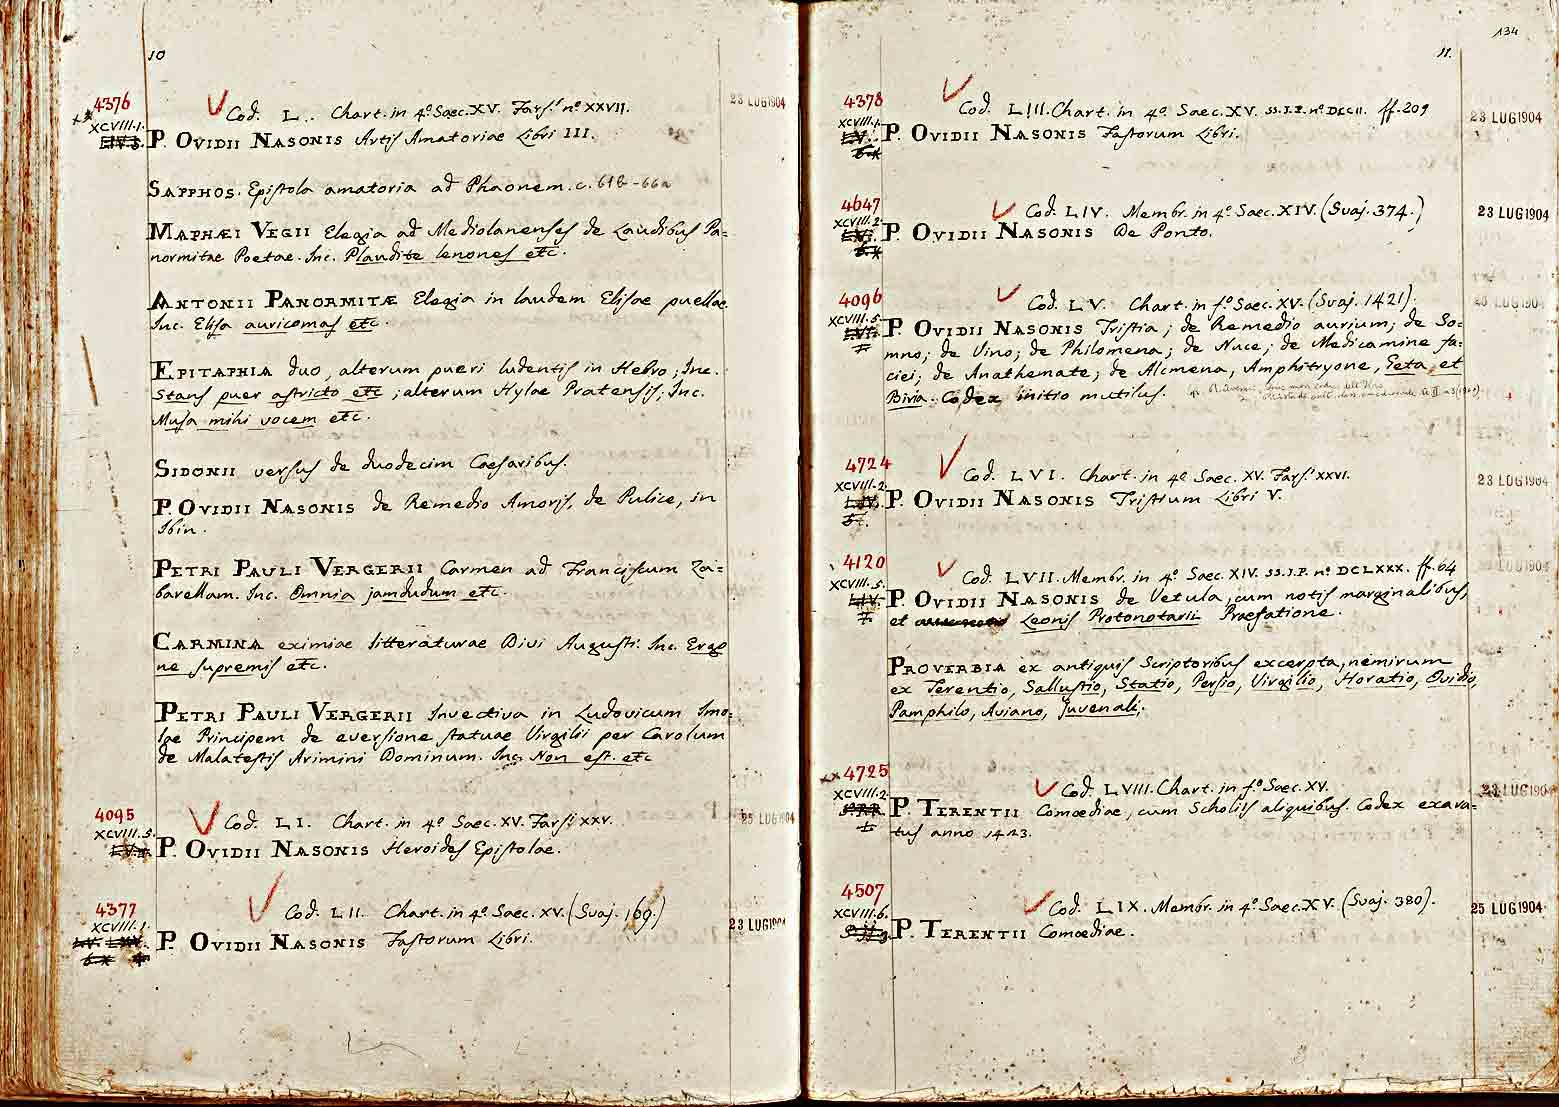 10
4376
Cod. L. Chart. in 4º. Saec. XV. Fars.ⁱ nº XXVII.
23 LUG 1904
XCVIII.1.
P. OVIDII NASONIS Artis Amatoriae Libri III.
SAPPHOS. Epistola amatoria ad Phaonem. c. 61b-66a
MAPHÆI VEGII Elegia ad Mediolanenses de Laudibus Pa=
normitae Poetae. Inc. Plaudite lenones etc.
ANTONII PANORMITÆ Elegia in laudem Elisae puellae
Inc. Elisa auricomas etc.
EPITAPHIA duo, alterum pueri ludentis in Hebro; Inc.
Stans puer astricto etc; alterum Hylae Pratensis; Inc.
Musa mihi vocem etc.
SIDONII versus de duodecim Caesaribus.
P. OVIDII NASONIS de Remedio Amoris, de Pulice, in
Ibin.
PETRI PAULI VERGERII Carmen ad Franciscum Za=
barellam. Inc. Omnia jamdudum etc.
CARMINA eximiae litteraturae Divi Augusti. Inc. Ergo
ne supremis etc.
PETRI PAULI VERGERII Invectiva in Ludovicum Imo=
lae Principem de eversione statuae Virgilii per Carolum
de Malatestis Arimini Dominum. Inc. Non est. etc
4095
Cod. LI. Chart. in 4º. Saec. XV. Fars.ⁱ XXV.
25 LUG 1904
XCVIII.5.
P. OVIDII NASONIS Heroides Epistolae.
4377
Cod. LII. Chart. in 4º. Saec. XV. (Suaj. 169.)
23 LUG 1904
XCVIII.1.
P. OVIDII NASONIS Fastorum Libri.
134
11.
4378
Cod. LIII. Chart. in 4º. Saec. XV. SS.J.P. nº DCCII. ff. 209
23 LUG 1904
XCVIII.1.
P. OVIDII NASONIS Fastorum Libri.
4647
Cod. LIV. Membr. in 4º. Saec. XIV. (Suaj. 374.)
23 LUG 1904
XCVIII.2.
P. OVIDII NASONIS De Ponto.
4096
Cod. LV. Chart. in fº. Saec. XV. (Suaj. 1421).
LUG 1904
XCVIII.5.
P. OVIDII NASONIS Tristia; de Remedio aurium; de So=
mno; de Vino; de Philomena; de Nuce; de Medicamine fa=
ciei; de Anathemate; de Alcmena, Amphitryone, Geta et
Biria. Codex initio mutilus.
4724
Cod. LVI. Chart. in 4º. Saec. XV. Fars.ⁱ XXVI.
23 LUG 1904
XCVIII.2.
P. OVIDII NASONIS Tristium Libri V.
4120
Cod. LVII. Membr. in 4º. Saec. XIV. SS.J.P. nº DCLXXX. ff. 64
LUG 1904
XCVIII.5.
P. OVIDII NASONIS de Vetula, cum notis marginalibus,
et Leonis Protonotarii Praefatione.
PROVERBIA ex antiquis Scriptoribus excerpta, nemirum
ex Terentio, Sallustio, Statio, Persio, Virgilio, Horatio, Ovidio,
Pamphilo, Aviano, Juvenali;
4725
Cod. LVIII. Chart. in fº. Saec. XV.
23 LUG 1904
XCVIII.2.
P. TERENTII Comœdiae, cum Scholiis aliquibus. Codex exara=
tus anno 1423.
4507
Cod. LIX. Membr. in 4º. Saec. XV. (Suaj. 380).
25 LUG 1904
XCVIII.6.
P. TERENTII Comœdiae.